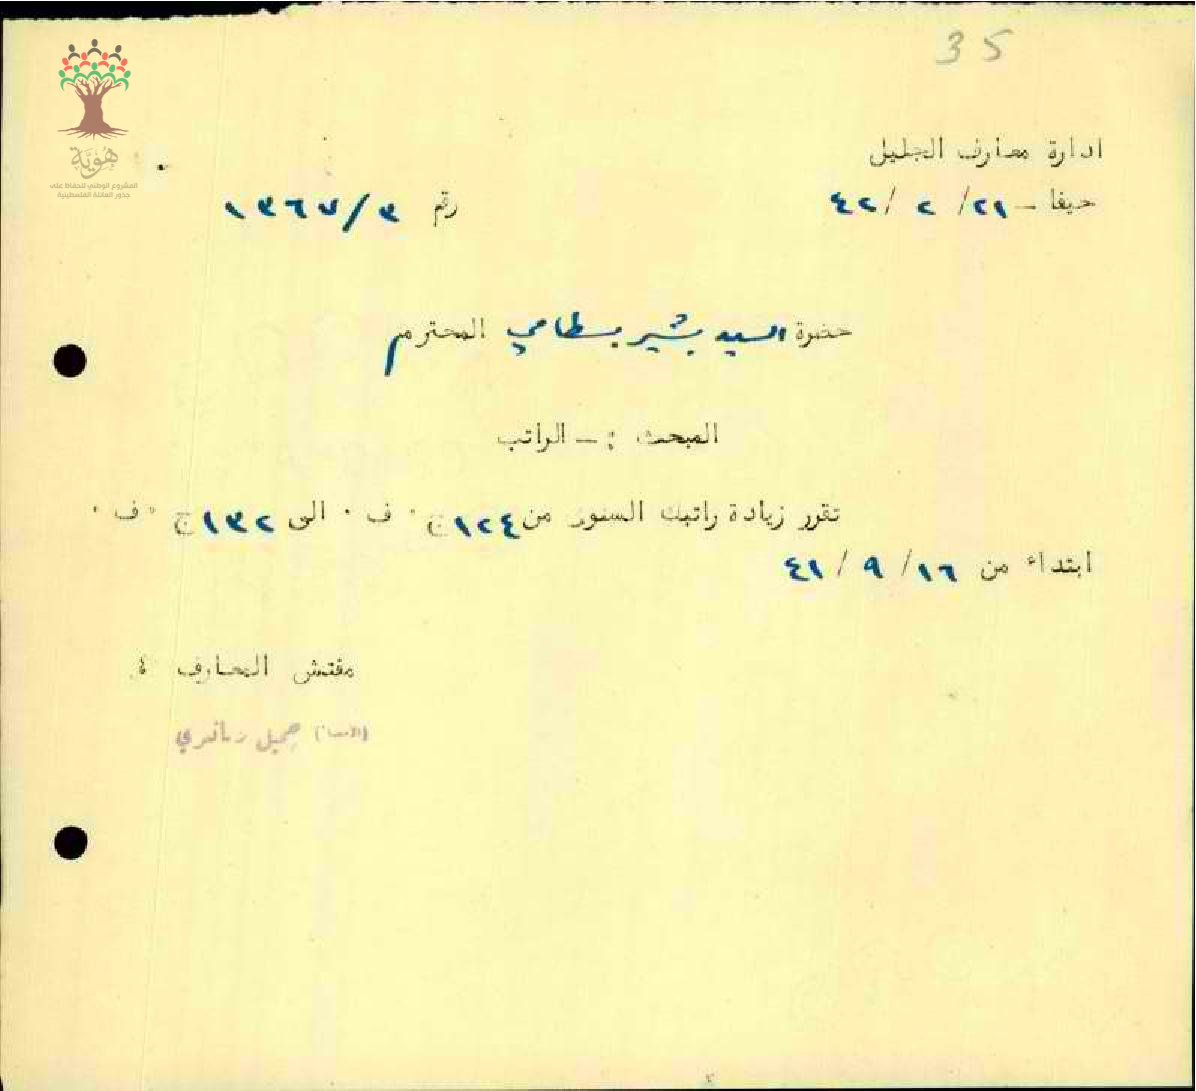 35
هوية
المشروع الوطني للحفاظ على
جذور العائلة الفلسطينية
ادارة معارف الجليل
حيفا – ٢١/ ٢ /٤٢ رقم ١٣٦٧/٣
حضرة السيد بشير بسطامي المحترم
المبحث :– الراتب
تقرر زيادة راتبك السنوى من ١٢٤ ج ٠ ف ٠ الى ١٣٢ ج ٠ ف ٠
ابتداء من ١٦/ ٩ / ٤١
مفتش المعارف
(الامضاء) جميل